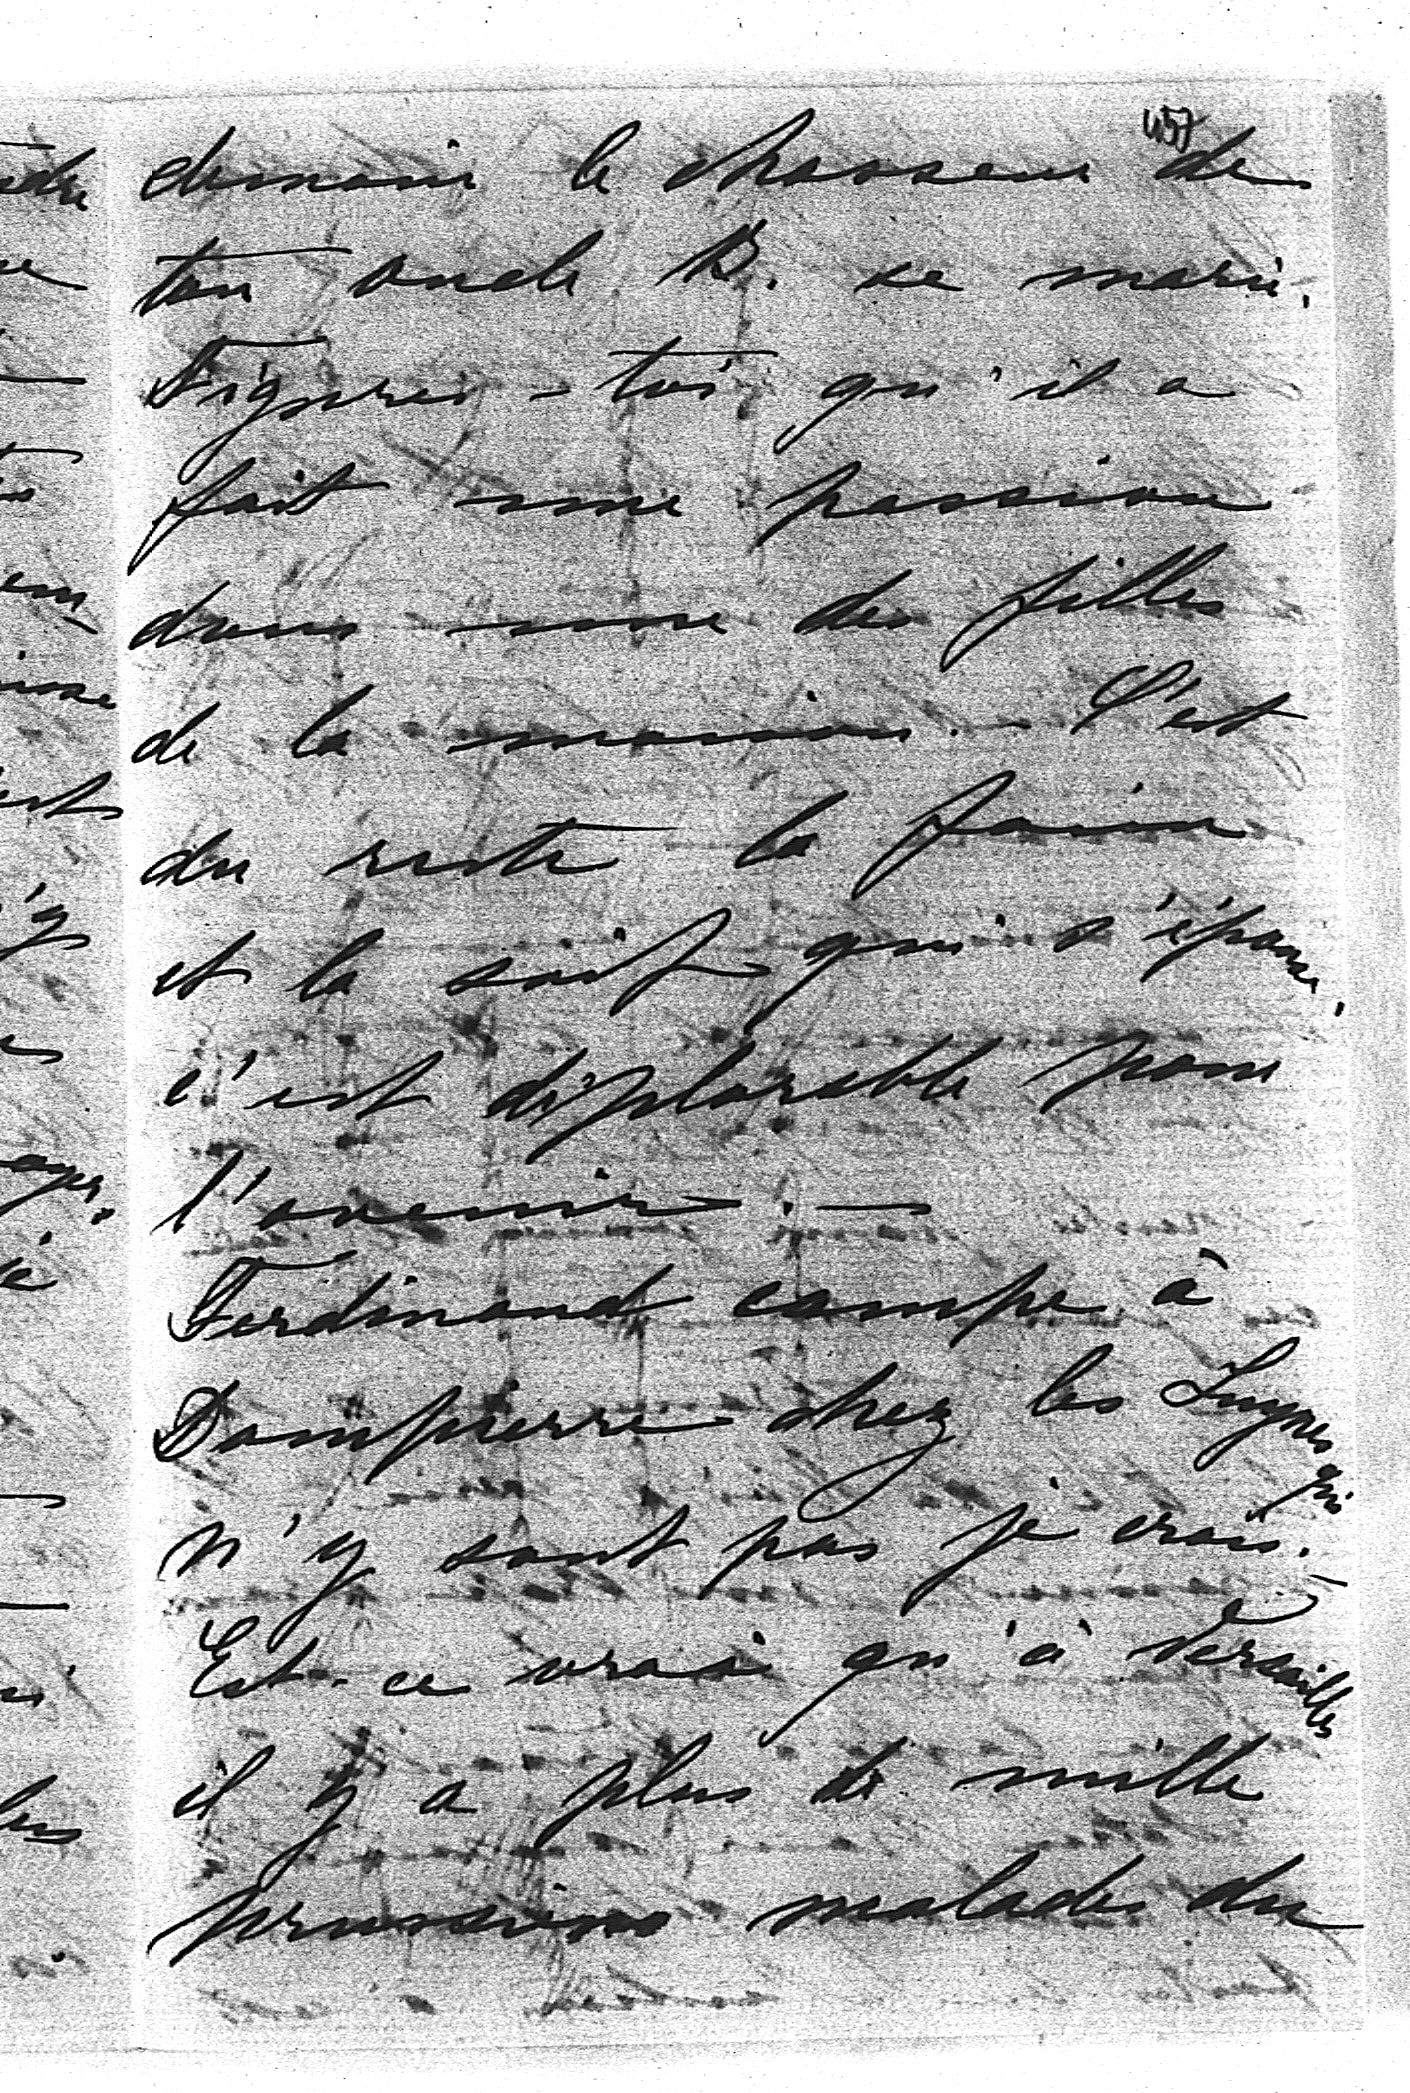 457
demain le chasseur de
ton oncle B. se marie.
Figures-toi qu'il a
fait une passion
dans une des filles
de la maison. - C'est
du reste la faim
et la soif qui s'épouse,
c'est déplorable pour
l'avenir. —
Ferdinand campe à
Dampierre chez les Luynes qui
n'y sont pas je crois. -
Est-ce vrai qu'à Versailles
il y a plus de mille
prussiens malades du